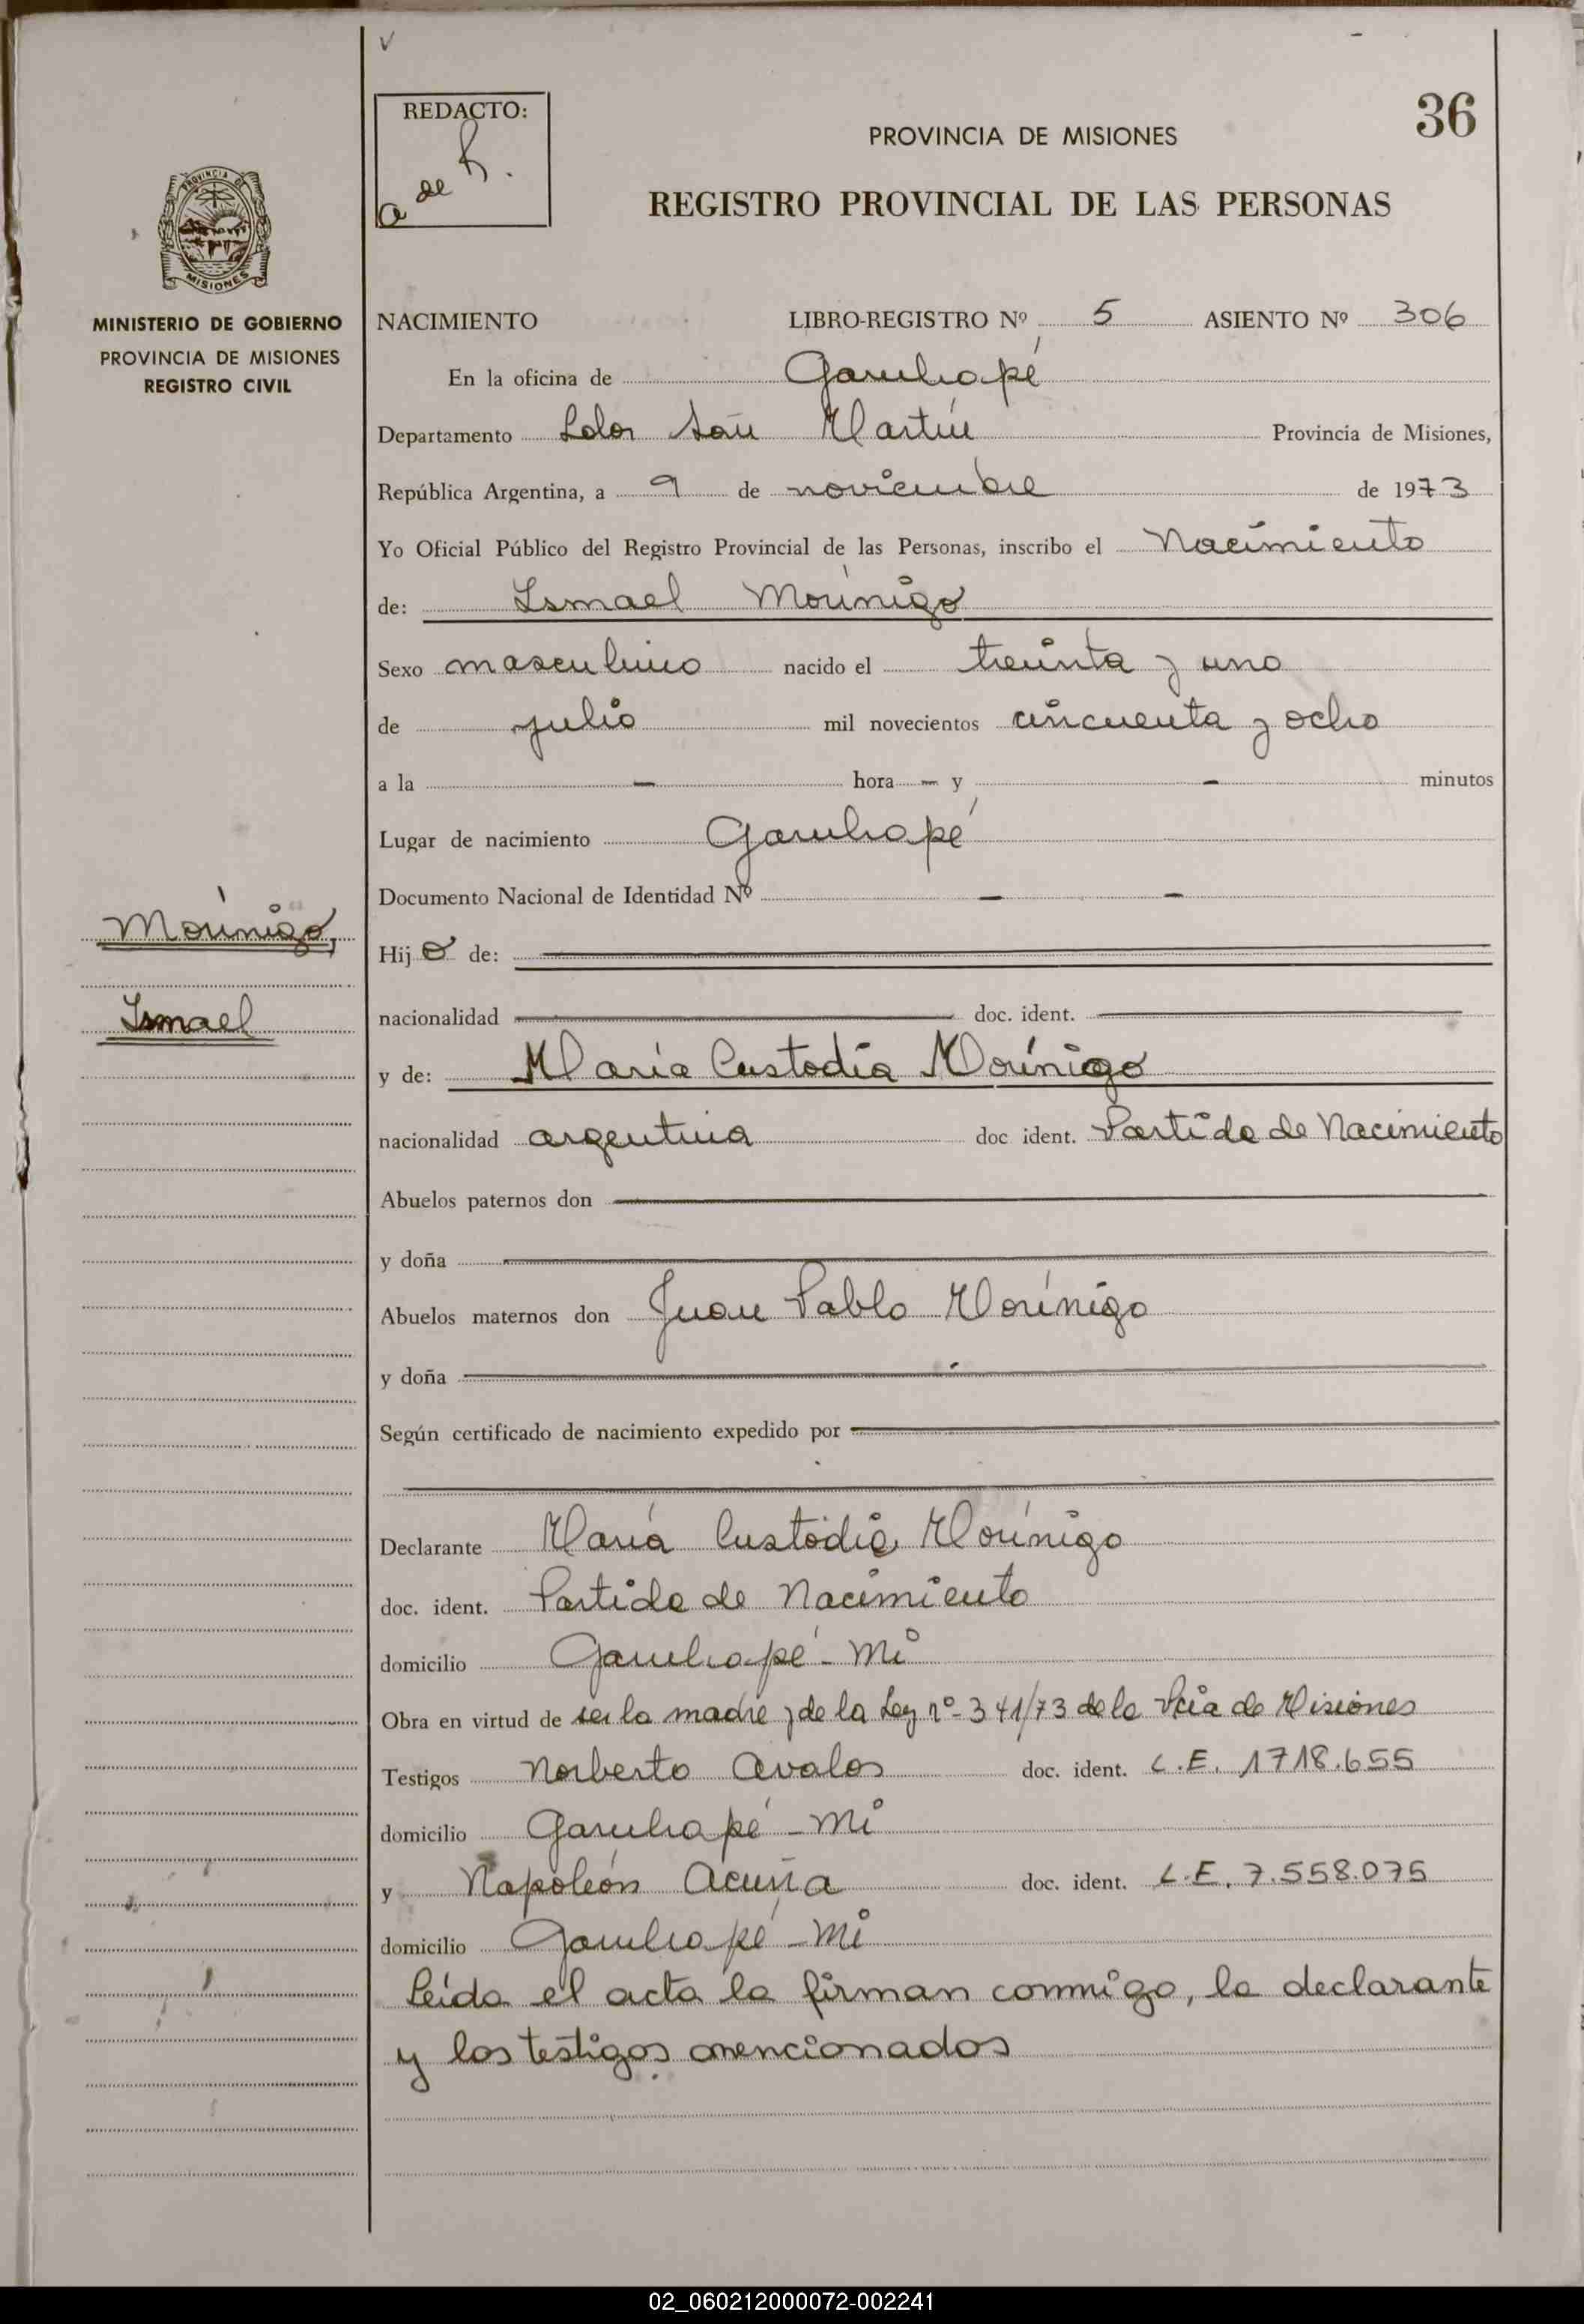 36
REDACTO:
a de R.
PROVINCIA DE MISIONES
REGISTRO PROVINCIAL DE LAS PERSONAS
PROVINCIA DE
MISIONES
MINISTERIO DE GOBIERNO
PROVINCIA DE MISIONES
REGISTRO CIVIL
NACIMIENTO LIBRO-REGISTRO Nº 5 ASIENTO Nº 306
En la oficina de Garuhapé
Departamento Ldor San Martín Provincia de Misiones,
República Argentina, a 9 de noviembre de 1973
Yo Oficial Público del Registro Provincial de las Personas, inscribo el Nacimiento
de: Ismael Morínigo
Sexo masculino nacido el treinta y uno
de julio mil novecientos cincuenta y ocho
a la — hora — y — minutos
Lugar de nacimiento Garuhapé
Documento Nacional de Identidad Nº — —
Morínigo,
Ismael
Hijo de:
nacionalidad doc. ident.
y de: María Custodia Morínigo
nacionalidad argentina doc ident. Partida de Nacimiento
Abuelos paternos don
y doña
Abuelos maternos don Juan Pablo Morínigo
y doña
Según certificado de nacimiento expedido por
Declarante María Custodia Morínigo
doc. ident. Partida de Nacimiento
domicilio Garuhapé - Mi
Obra en virtud de ser la madre y de la Ley nº- 341/73 de la Pcia de Misiones
Testigos Norberto Avalos doc. ident. L.E. 1718.655
domicilio Garuhapé - Mi
y Napoleón Acuña doc. ident. L.E. 7.558.075
domicilio Garuhapé - Mi
Leída el acta la firman conmigo, la declarante
y los testigos mencionados
02_060212000072-002241